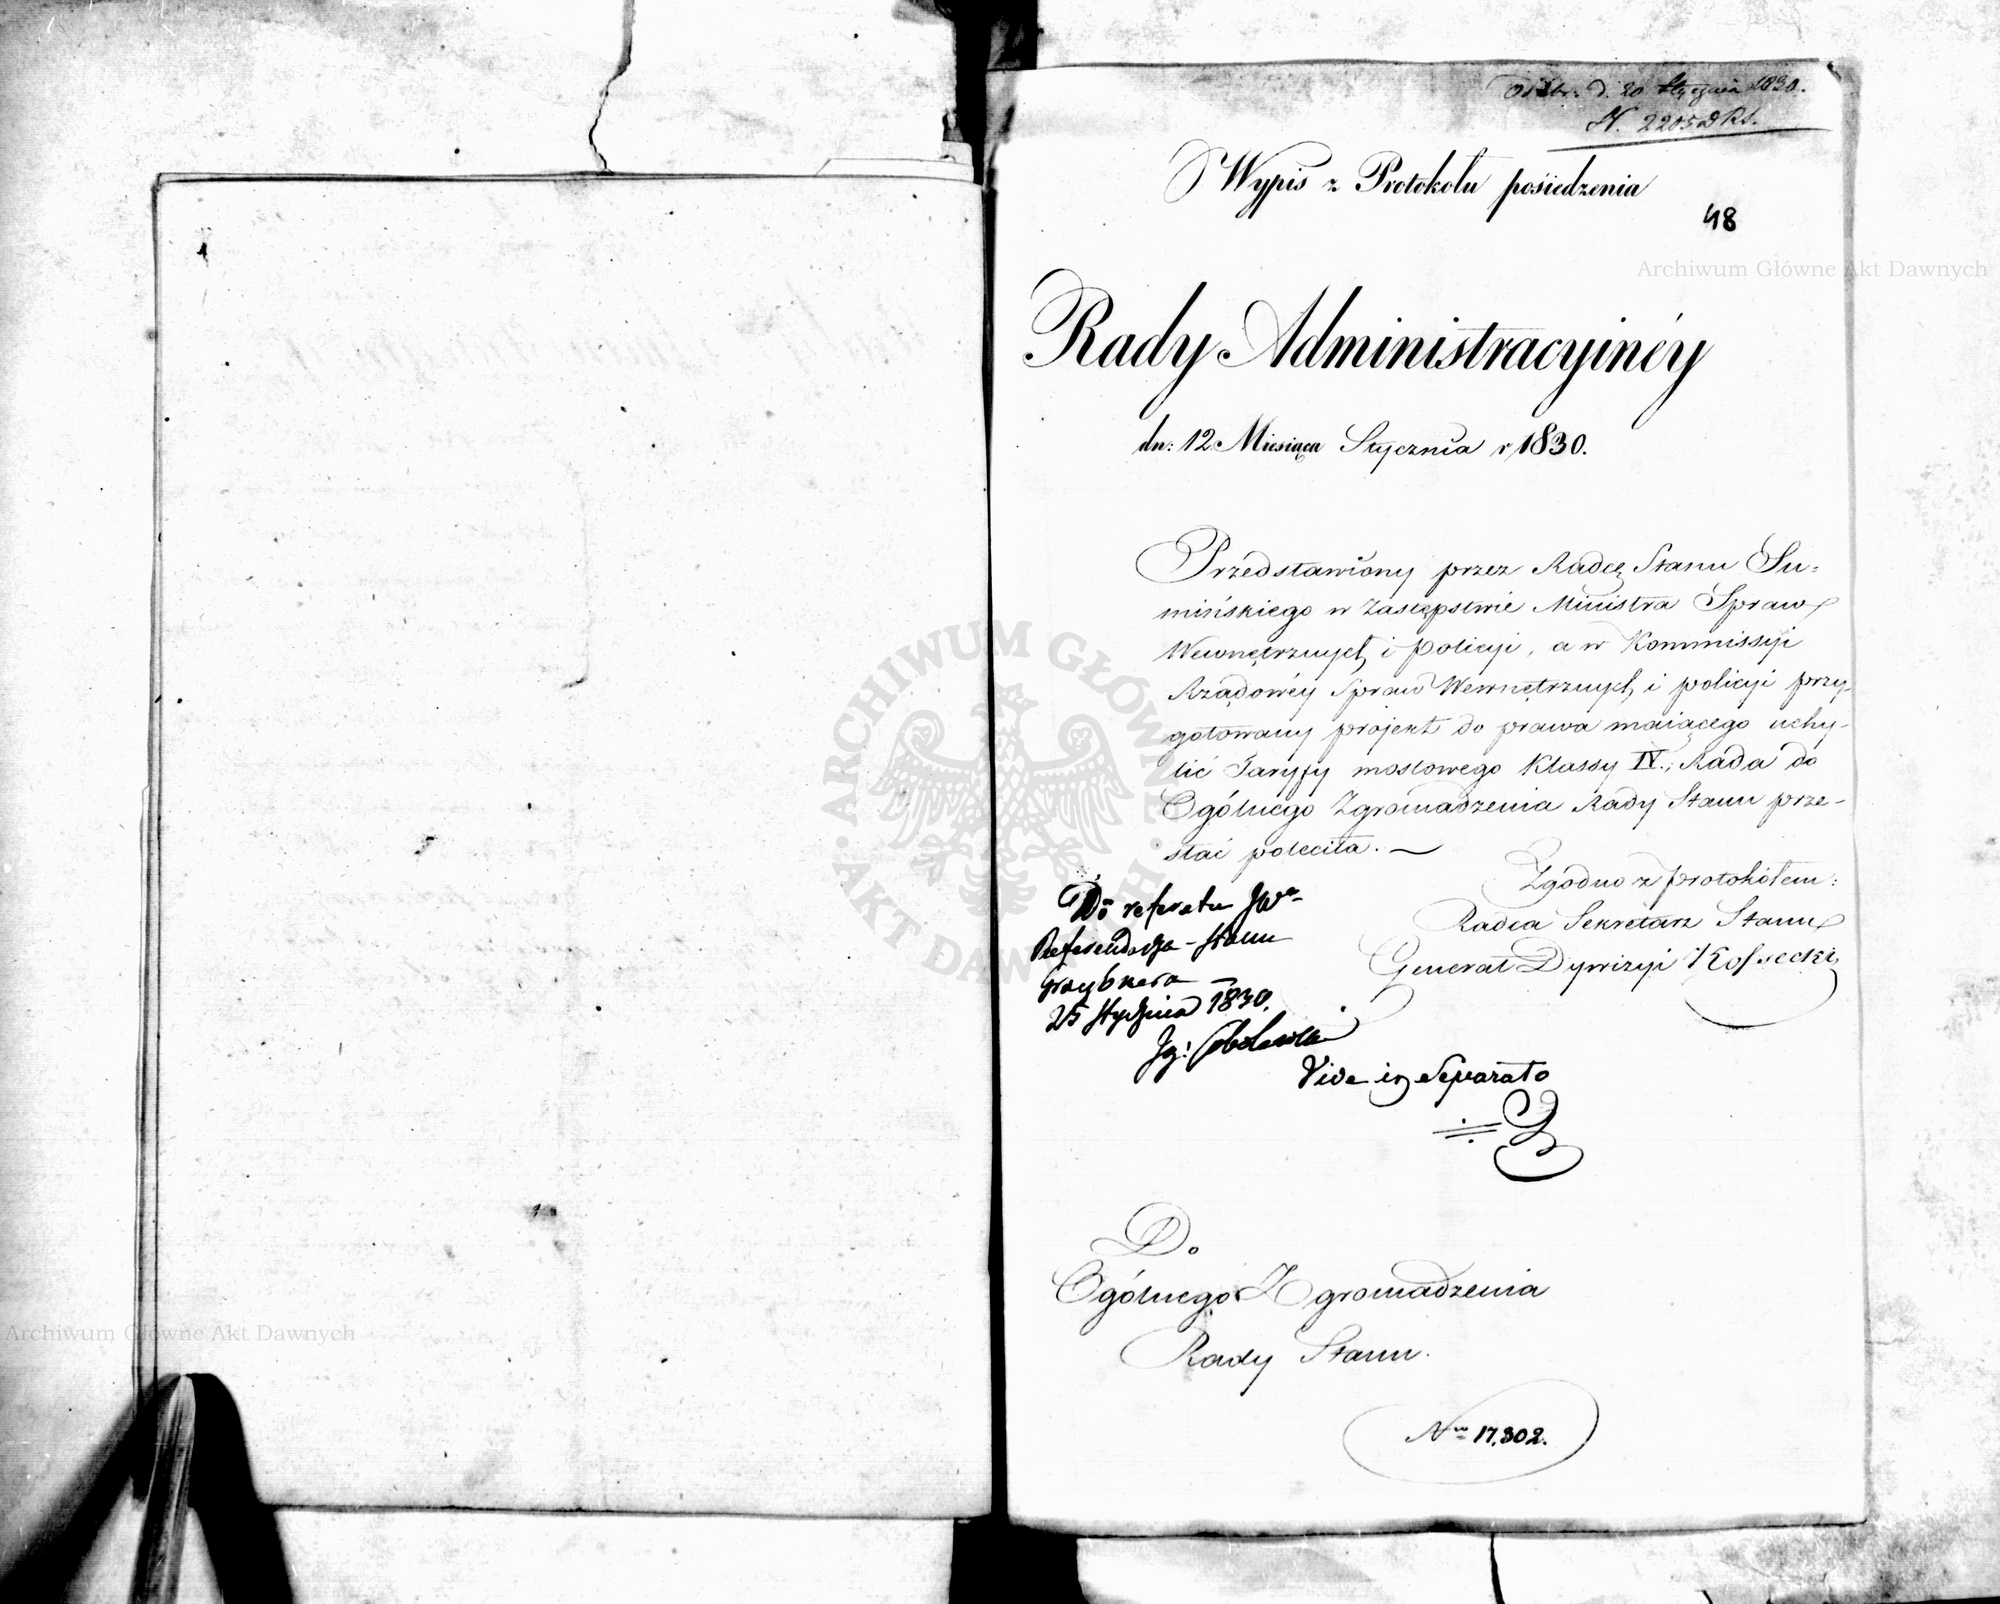 Odebr. d. 20 Stycznia 1830.
N. 2205 D R S.
Wypis z Protokołu posiedzenia
48
Archiwum Główne Akt Dawnych
Rady Administracyinéy
dn: 12 Miesiąca Stycznia r 1830.
Przedstawiony przez Radcę Stanu Su-
mińskiego w zastępstwie Ministra Spraw
Wewnętrznych i policyi, a w Kommissyi
Rządowéy Spraw Wewnętrznych i policyi przy-
gotowany projekt do prawa maiącego uchy-
lić Taryffy mostowego Klassy IV., Rada do
Ogólnego Zgromadzenia Rady Stanu prze-
słać poleciła. —
Zgodno z protokółem:
Radca Sekretarz Stanu
Generał Dywizyi Kossecki
Do referatu JWo
Referendarza Stanu
Grzybnera —
25 Stycznia 1830.
Vide in Separato
Do
Ogólnego Zgromadzenia
Rady Stanu.
Nro 17,302.
ARCHIWUM GŁÓWNE
AKT DAWNYCH
Archiwum Główne Akt Dawnych